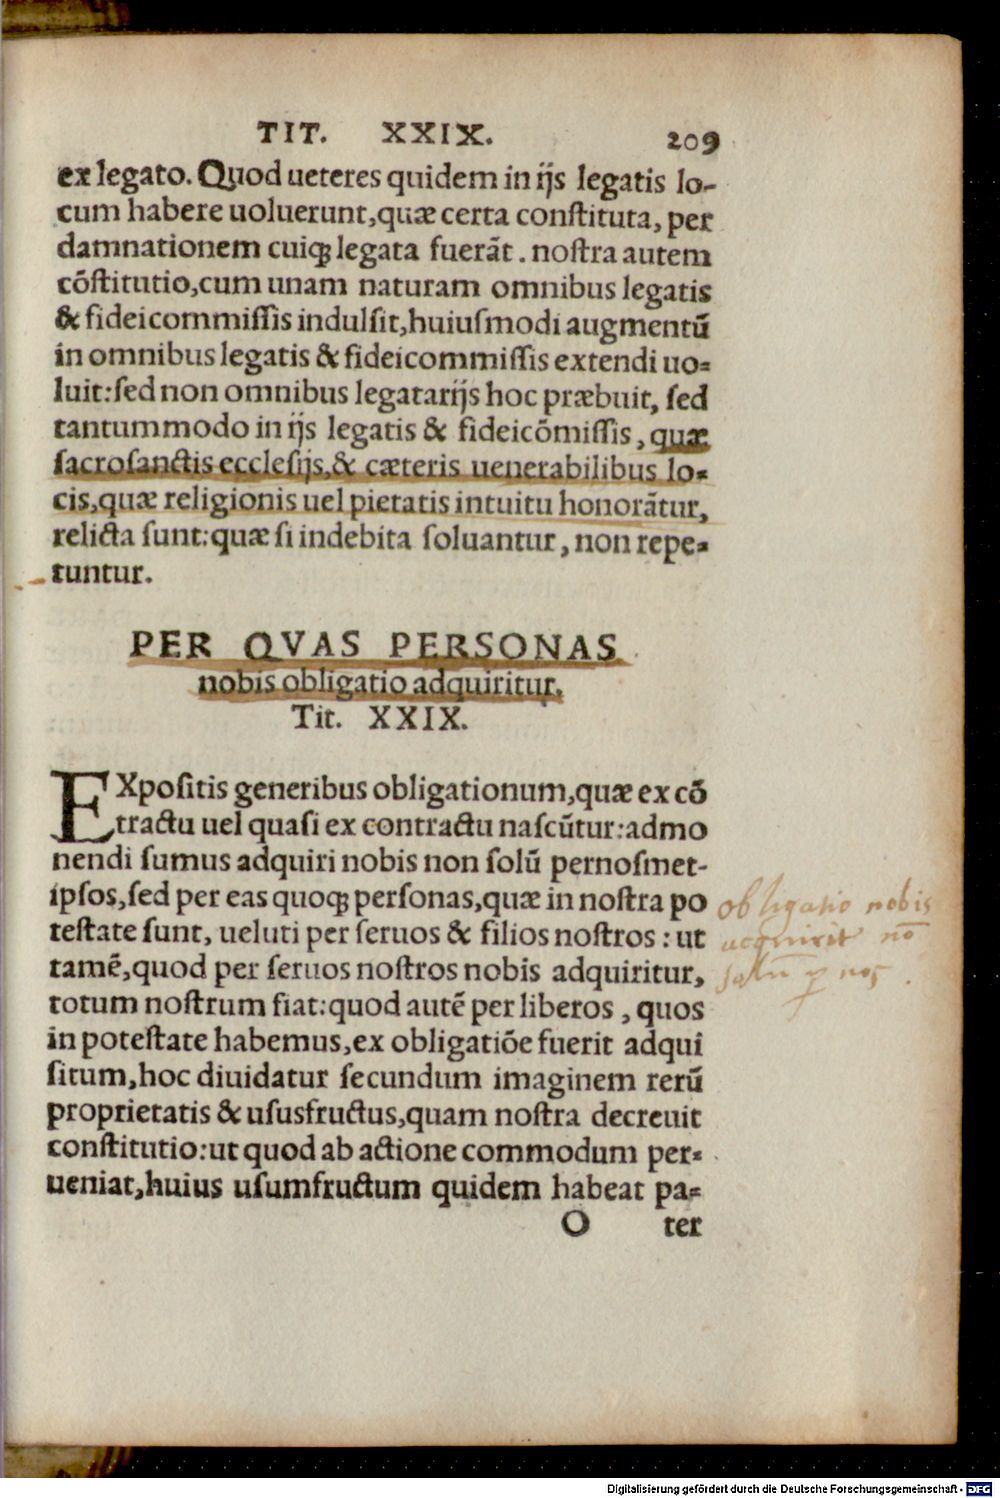 TIT. XXIX. 209
ex legato. Quod ueteres quidem in ijs legatis lo-
cum habere uoluerunt, quæ certa constituta, per
damnationem cuiqꝫ legata fuerāt. nostra autem
cōstitutio, cum unam naturam omnibus legatis
& fideicommissis indulsit, huiusmodi augmentū
in omnibus legatis & fideicommissis extendi uo-
luit: sed non omnibus legatarijs hoc præbuit, sed
tantummodo in ijs legatis & fideicōmissis, quæ
sacrosanctis ecclesijs, & cæteris uenerabilibus lo-
cis, quæ religionis uel pietatis intuitu honorātur,
relicta sunt: quæ si indebita soluantur, non repe-
tuntur.
PER QVAS PERSONAS
nobis obligatio adquiritur.
Tit. XXIX.
EXpositis generibus obligationum, quæ ex cō
tractu uel quasi ex contractu nascūtur: admo
nendi sumus adquiri nobis non solū per nosmet-
ipsos, sed per eas quoqꝫ personas, quæ in nostra po
testate sunt, ueluti per seruos & filios nostros: ut
tamē, quod per seruos nostros nobis adquiritur,
totum nostrum fiat: quod autē per liberos, quos
in potestate habemus, ex obligatiōe fuerit adqui
situm, hoc diuidatur secundum imaginem rerū
proprietatis & ususfructus, quam nostra decreuit
constitutio: ut quod ab actione commodum per-
ueniat, huius usumfructum quidem habeat pa-
O ter
obligatio nobis
acquirit nō
solū ꝑ nos
Digitalisierung gefördert durch die Deutsche Forschungsgemeinschaft - DFG